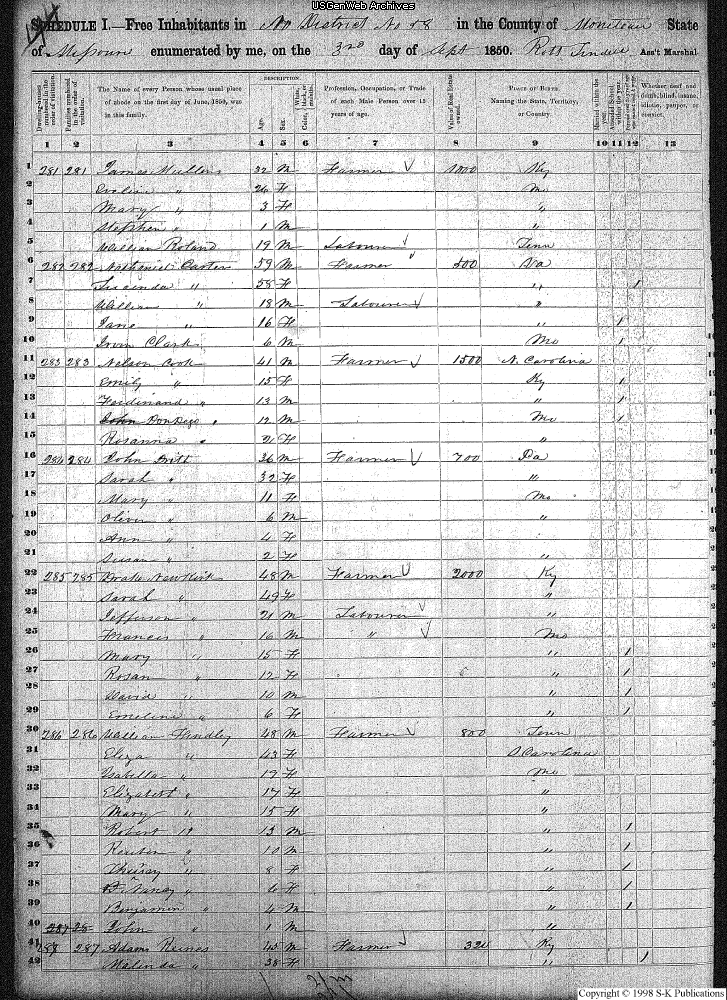 USGenWeb Archives
SCHEDULE I.—Free Inhabitants in District No 58 in the County of Moniteau State
of Missouri enumerated by me, on the 3rd day of Sept 1850. Ass't Marshal
DESCRIPTION.
Dwelling-houses numbered in the order of visitation.
Families numbered in the order of visitation.
The Name of every Person whose usual place of abode on the first day of June, 1850, was in this family.
Age.
Sex.
Color, White, black, or mulatto.
Profession, Occupation, or Trade of each Male Person over 15 years of age.
Value of Real Estate owned.
PLACE OF BIRTH. Naming the State, Territory, or Country.
Married within the year.
Attended School within the year.
Whether deaf and dumb, blind, insane, idiotic, pauper, or convict.
1 2 3 4 5 6 7 8 9 10 11 12 13
1 281 281 James Mullins 32 M Farmer 1000 Ky
2 " 26 F Mo
3 Mary " 3 F "
4 Stephen " 1 M "
5 William Roland 19 M Labourer Tenn
6 282 282 Nathaniel Carter 59 M Farmer 500 Va
7 " 58 F " 1
8 William " 18 M Labourer "
9 Jane " 16 F " 1
10 Irvin Clark 6 M Mo 1
11 283 283 Nelson Cook 41 M Farmer 1500 N. Carolina
12 Emily " 15 F Ky 1
13 Ferdinand " 13 M " 1
14 John 12 M Mo 1
15 Rosanna " 21 F "
16 284 284 John Britt 36 M Farmer 700 Pa
17 Sarah " 32 F "
18 Mary " 11 F Mo
19 Oliver " 6 M "
20 Ann " 4 F
21 Susan " 2 F "
22 285 285 Drake Newkirk 48 M Farmer 2000 Ky
23 Sarah " 49 F "
24 Jefferson " 21 M Labourer "
25 Francis " 16 M " Mo
26 Mary " 15 F " 1
27 Rosan " 12 F " 1
28 David " 10 M " 1
29 Emeline " 6 F " 1
30 286 286 William Findley 48 M Farmer 800 Tenn
31 Eliza " 43 F S Carolina
32 Isabella " 19 F Mo
33 Elizabeth " 17 F "
34 Mary " 15 F "
35 Robert " 13 M " 1
36 Reuben " 10 M " 1
37 " 8 F " 1
38 Nancy " 6 F " 1
39 Benjamin " 4 M " 1
40 John " 1 M "
41 287 287 Adam Haines 45 M Farmer 320 Ky
42 Malinda " 38 F " 1
Copyright © 1998 S-K Publications